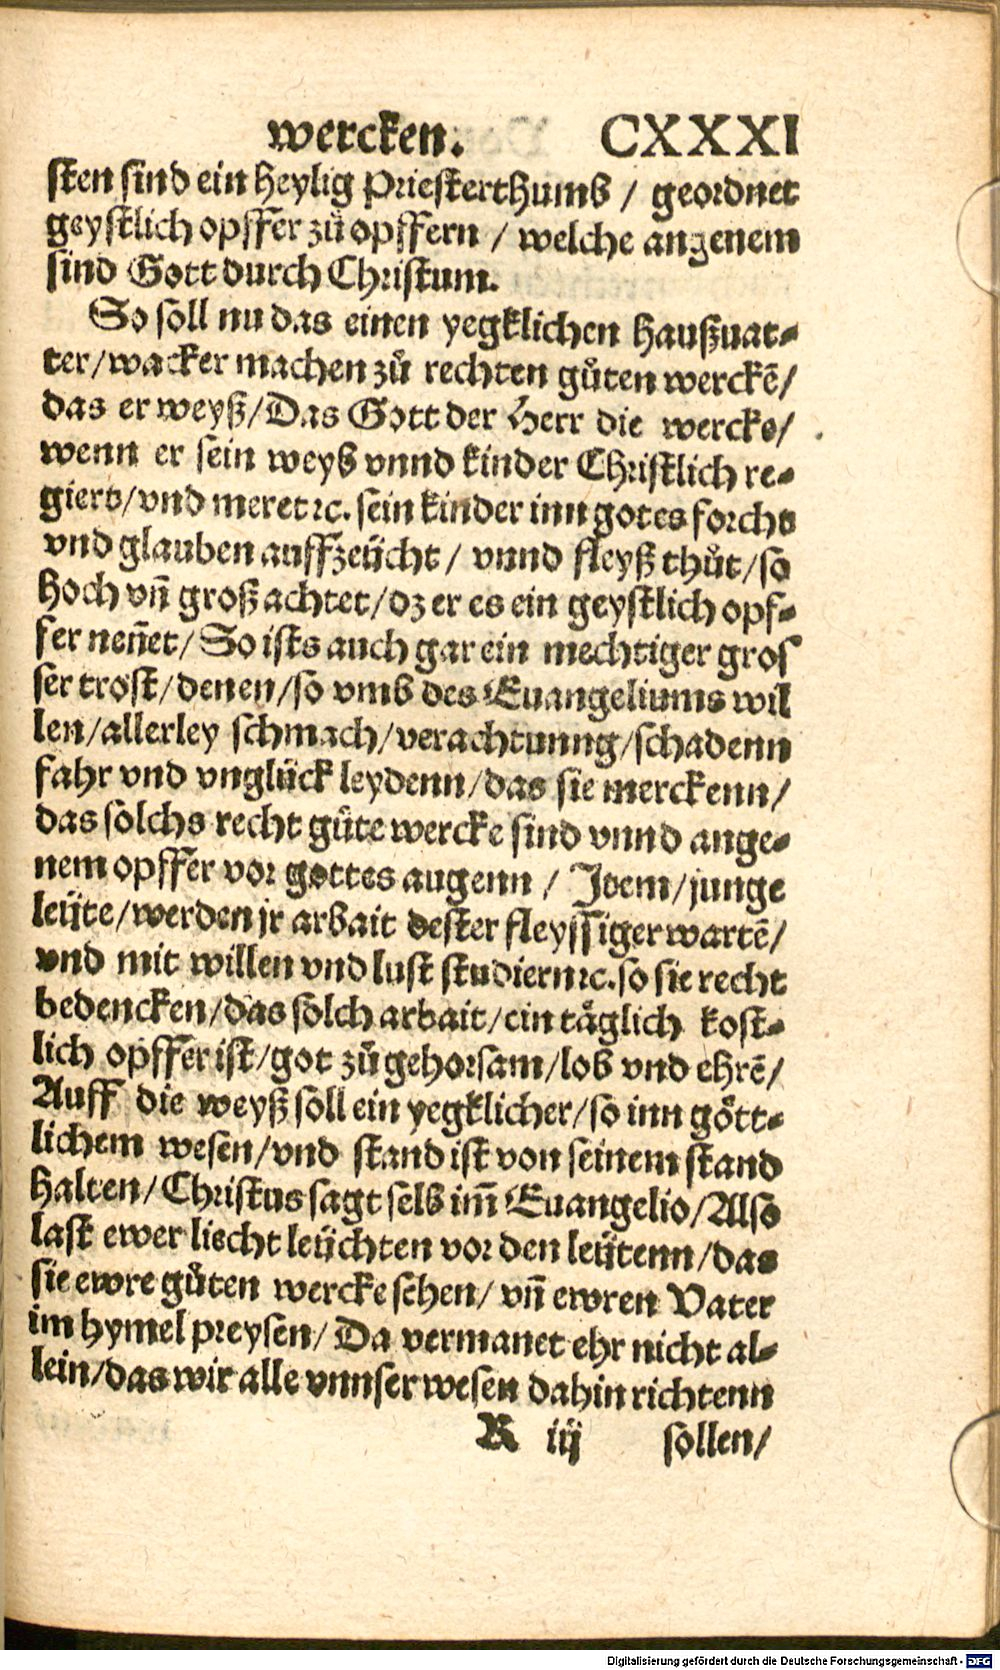 wercken. CXXXI
sten sind ein heylig Priesterthumb / geordnet
geystlich opffer zů opffern / welche angenem
sind Gott durch Christum.
So soll nu das einen yegklichen haußuat⸗
ter/wacker machen zů rechten gůten werckē/
das er weyß/Das Gott der Herr die wercke/
wenn er sein weyb vnnd kinder Christlich re⸗
giert/vnd meret ꝛc. sein kinder inn gotes forcht
vnd glauben auffzeücht / vnnd fleyß thůt/so
hoch vn̄ groß achtet/dz er es ein geystlich opf⸗
fer nen̄et/So ists auch gar ein mechtiger gros
ser trost/denen/so vmb des Euangeliums wil
len/allerley schmach/verachtunng/schadenn
fahr vnd vnglück leydenn/das sie merckenn/
das solchs recht gůte wercke sind vnnd ange⸗
nem opffer vor gottes augenn / Item/junge
leüte/werden jr arbait dester fleyssiger wartē/
vnd mit willen vnd lust studiern ꝛc. so sie recht
bedencken/das solch arbait/ein täglich kost⸗
lich opffer ist/got zů gehorsam/lob vnd ehrē/
Auff die weyß soll ein yegklicher/so inn gött⸗
lichem wesen/vnd stand ist von seinem stand
halten/Christus sagt selb im̄ Euangelio/Also
last ewer liecht leüchten vor den leütenn/das
sie ewre gůten wercke sehen/ vn̄ ewren Vater
im hymel preysen/ Da vermanet ehr nicht al⸗
lein/das wir alle vnnser wesen dahin richtenn
R iij sollen/
Digitalisierung gefördert durch die Deutsche Forschungsgemeinschaft - DFG